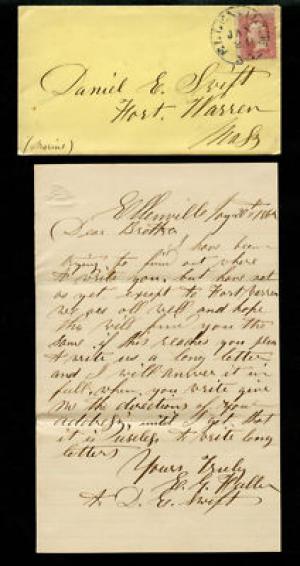 Daniel E. Swift
Fort. Warren
Mass
(Marine)
Ellenville Jany
Dear Brother
I have been
trying to find out where
to write you, but have not
as yet except to Fort Warren
we are all well and hope
this will find you the
same if this reaches you please
to write us a long letter
and I will answer it in
full, when you write give
me the directions of your
address, until I get that
it is useless to write long
letters
Yours Truly
E. G.
to D. E. Swift